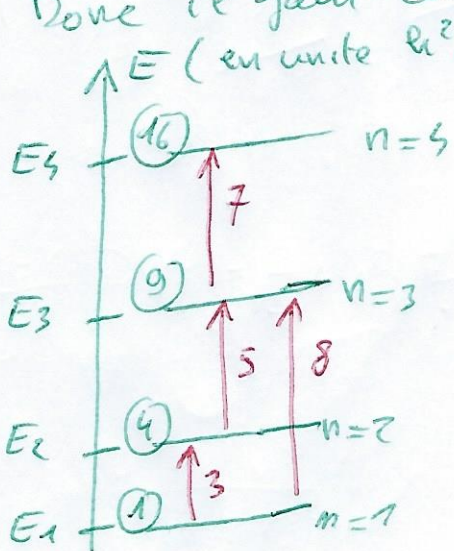 Donc le
E (en unité h²
E4 16 n=4
7
E3 9 n=3
5 8
E2 4 n=2
3
E1 1 n=1